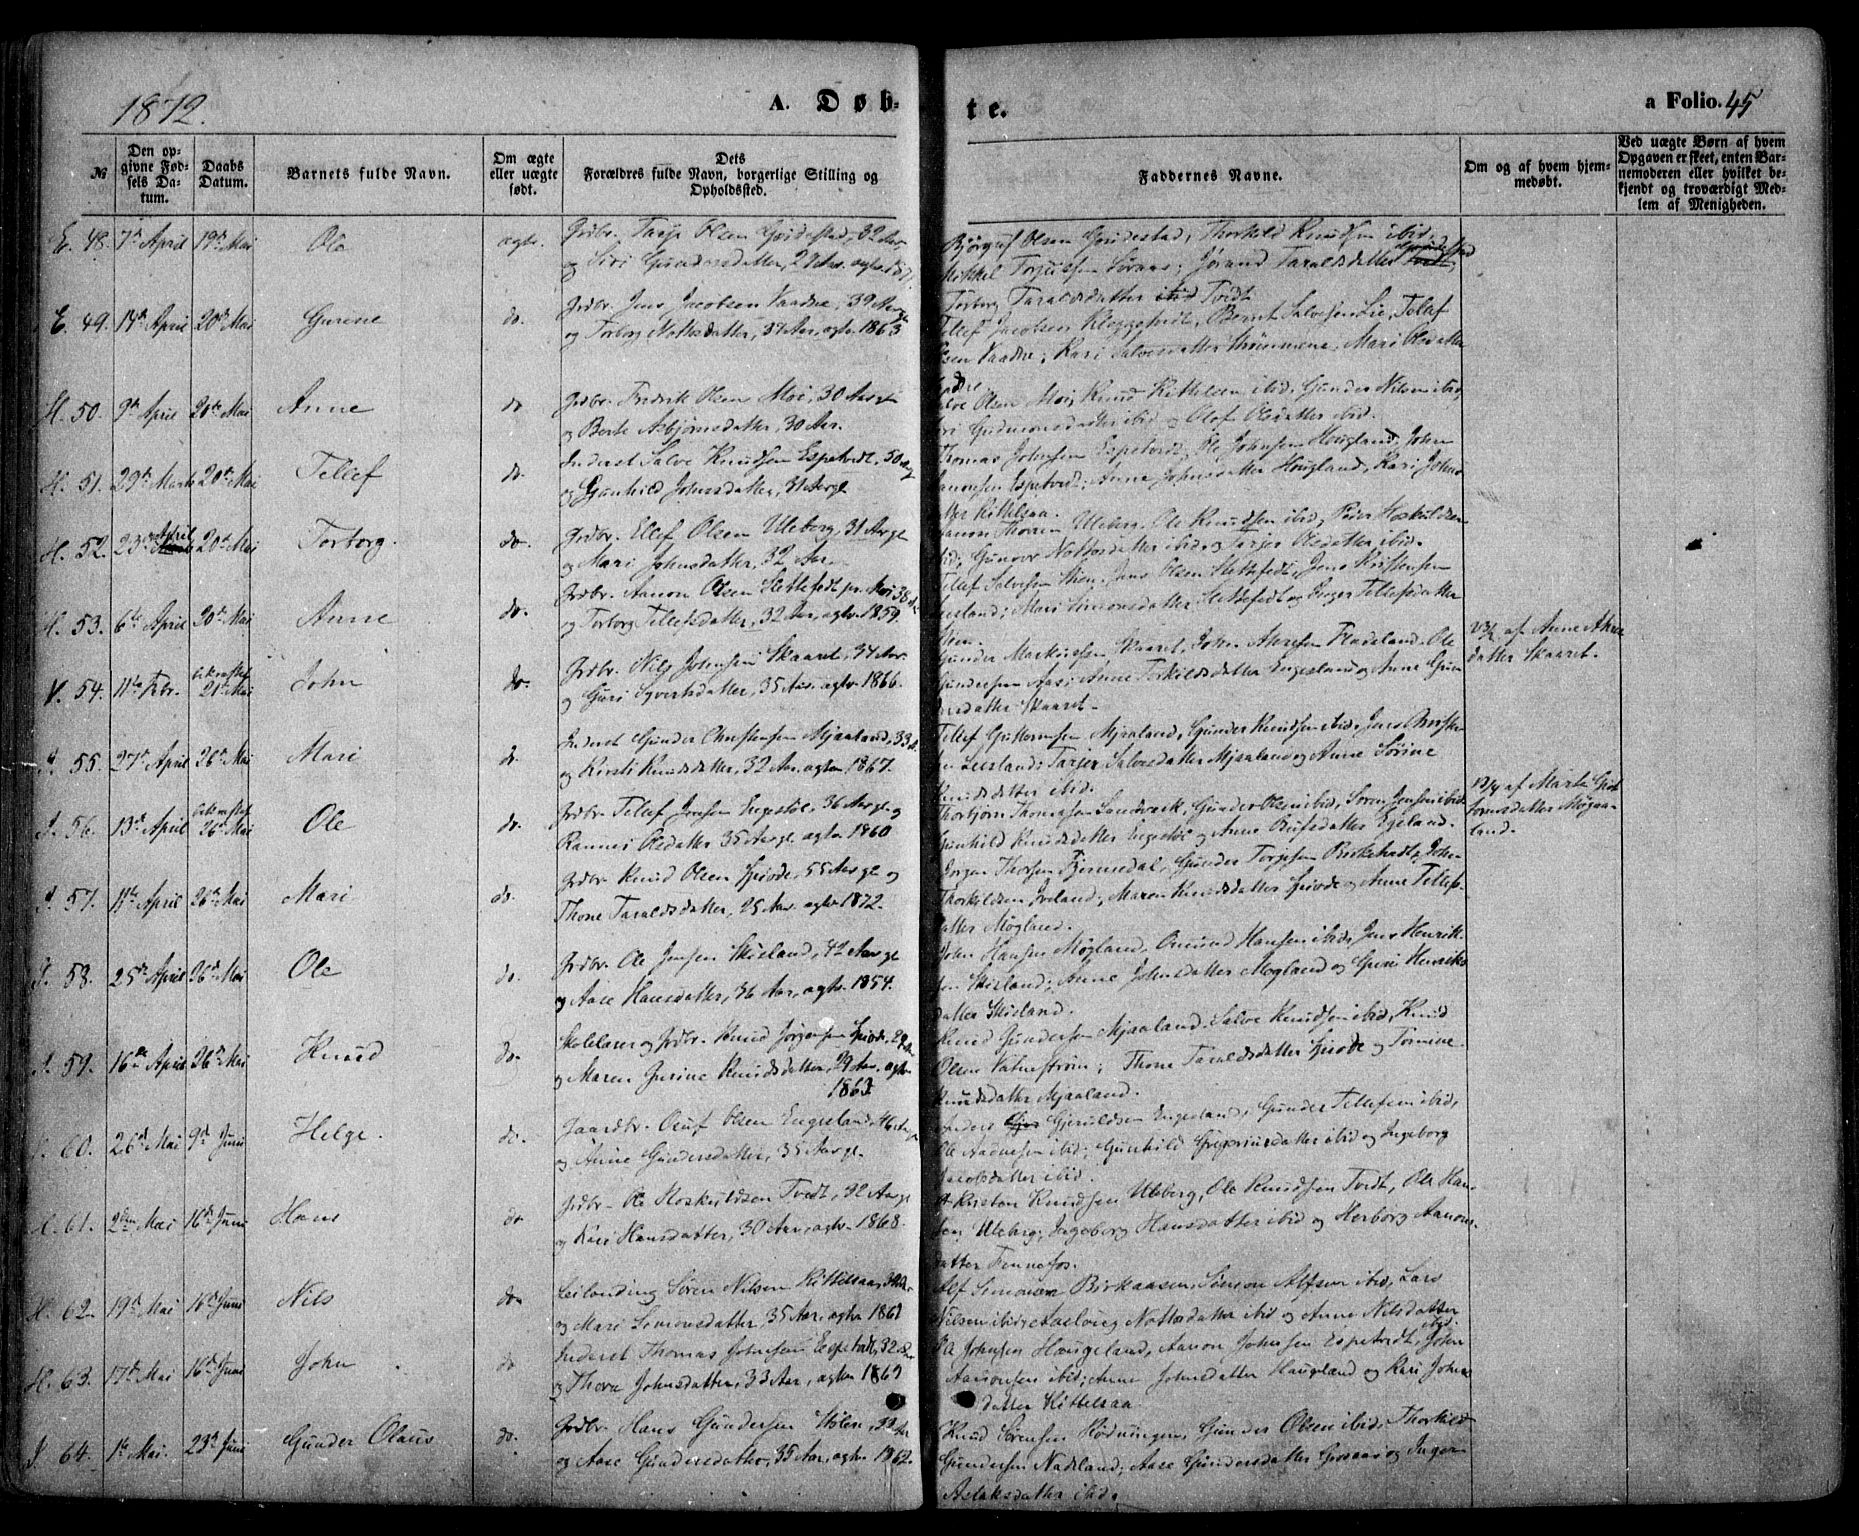 1872.
A. Døb-
te.
a Folio. 45
№
Den op-
givne Fød-
sels Da-
tum.
Daabs
Datum.
Barnets fulde Navn.
Om ægte
eller uægte
født.
Dets
Forældres fulde Navn, borgerlige Stilling og
Opholdssted.
Faddernes Navne.
Om og af hvem hjem-
medøbt.
Ved uægte Børn af hvem
Opgaven er skeet, enten Bar-
nemoderen eller hvilket be-
kjendt og troværdigt Med-
lem af Menigheden.
E. 48. 7de April 19de Mai Ole ægte. Grdbr. Tarje Olsen 32 Aar
og Siri Gundersdatter, 29 Aar,
Bjørguf Olsen Thorkild Knudsen ibid,
Mikkel Torjussen Jorand Taraldsdatter
Torborg Taraldsdatter Tvedt
E. 49. 14de April 20de Mai Gurine do. Grdbr. Jens Jacobsen Vaadne, 39 Aar
og Torborg Nottosdatter, 37 Aar, agtv. 1863
Tellef Jacobsen Bernt Salvesen Lie, Tellef
Olsen Vaadne; Kari Salvesdatter Mari Olsdatter
H. 50. 9de April 20de Mai Anne do Grdbr. Fredrik Olsen Moi, 30 Aar
og Berte Asbjørnsdatter, 30 Aar.
Olsen Moi, Knud Kittelsen ibid, Gunder Nilsen ibid,
Gudmundsdatter ibid og Oluf Olsdatter ibid.
H. 51. 29de Marts 20de Mai Tellef do. Inderst Salve Knudsen Espetvedt, 50
og Gunhild Johnsdatter, 31 Aar gl
Thomas Johnsen Espetvedt, Ole Johnsen Hougland, John
Aanonsen Espetvedt; Anne Johnsdatter Hougland, Kari Johns-
datter Kittelsaa.
H. 52. 23de April 20de Mai Torborg. do. Grdbr. Ellef Olsen Uleberg, 31 Aar gl
og Mari Johnsdatter, 32 Aar
Aanon Thoresen Uleberg, Ole Knudsen ibid, Peder Hoskuldsen
ibid; Gunvor Nottosdatter ibid og Tarjer Olsdatter ibid.
H. 53. 6te April 20de Mai Anne do. Grdbr. Aanon Olsen Slettefedt pr. Moi 38
og Torborg Tellefsdatter, 32 Aar, agtv. 1859.
Tellef Salvesen Stien, Jens Olsen Slettefedt, Jens Kristensen
Mari Simonsdatter Slettefedt og Inger Tellefsdatter
Stien.
V. 54. 11te Febr. bekræftet
21de Mai John do. Grdbr. Nils Johnsen Skaaret, 34 Aar
og Guri Syvertsdatter, 35 Aar, agtv. 1866.
Gunder Markussen Skaaret, John Fladeland, Ole
Gundersen Aasi; Anne Torkildsdatter Engesland og Anne Gun-
dersdatter Skaaret.
23/2 af Anne
datter Skaaret.
J. 55. 27de April 26de Mai Mari do. Inderst Gunder Christensen Mjaaland, 33
og Kirsti Knudsdatter, 32 Aar, agtv. 1867.
Tellef Guttormsen Mjaaland, Gunder Knudsen ibid, Jens
Tarjer Salvesdatter Mjaaland og Anne Sørine
Knudsdatter ibid.
J. 56. 13de April bekræftet
26de Mai Ole do. Grdbr. Tellef Jensen Engestøl, 36 Aar gl og
Rannei Olsdatter 35 Aar gl, agtv. 1860
Thorbjørn Thomassen Landverk, Gunder Olsen ibid, Søren Jensen ibid
Gunhild Knudsdatter Engestøl og Anne Egeland.
13/4 af Marte Gut-
tormsdatter Mjaa-
land.
J. 57. 11te April 26de Mai Mari do. Grdbr. Knud Olsen 55 Aar gl og
Thone Taraldsdatter, 25 Aar agtv. 1872.
Jørgen Thorsen Gunder Torjesen Birkeland, John
Thorkildsen Iveland; Maren Knudsdatter og Anne Tellefs-
datter Møgland.
J. 58. 25de April 26de Mai Ole do. Grdbr. Ole Jensen Skisland, 42 Aar gl
og Aase Hansdatter, 36 Aar, agtv. 1854.
John Hansen Møgland, Omund Hansen ibid, Jens Henrik-
sen Skisland; Anne Johnsdatter Møgland og Guri Henriks-
datter Skisland.
J. 59. 16de April 26de Mai Knud do. Skolelærer og Grdbr. Knud Jørgensen 29
og Maren Gurine Knudsdatter, 29 Aar, agtv.
1863
Knud Gundersen Mjaaland, Salve Knudsen ibid, Knud
Olsen Vatnestrøm; Thone Taraldsdatter og Tomine
Knudsdatter Mjaaland.
J. 60. 26de Mai 9de Juni Helge. do. Gaardbr. Oluf Olsen Engesland, 46
og Anne Gundersdatter, 35 Aar gl.
Anders Gjeruldsen Engesland, Gunder Tellefsen ibid,
Ole Aadnesen ibid; Gunhild Gregoriusdatter ibid og Ingeborg
Jacobsdatter ibid.
H. 61. 2den Mai 16de Juni Hans do Grdbr. Ole Hoskuldsen Tvedt, 32 Aar gl
og Kari Hansdatter, 30 Aar, agtv. 1868.
Kristen Knudsen Uleberg, Ole Knudsen Tvedt, Ole Han-
sen Uleberg; Ingeborg Hansdatter ibid og Herborg Aanons-
datter Fennefos.
H. 62. 19de Mai 16de Juni Nils do. Leilending Søren Nilsen Kittelsaa, 32
og Mari Simonsdatter, 35 Aar, agtv. 1861
Alf Simonsen Birkaasen, Simon Alfsen ibid, Lars
Nilsen ibid; Aaslaug Nottosdatter ibid og Anne Nilsdatter
ibid.
H. 63. 17de Mai 16de Juni John do Inderst Thomas Johnsen Espetvedt, 32
og Thora Johnsdatter, 33 Aar, agtv. 1869
Ole Johnsen Hougeland, Aanon Johnsen Espetvedt, John
Aanonsen ibid; Anne Johnsdatter Haugland og Kari Johns-
datter Kittelsaa.
J. 64. 1ste Mai. 23de Juni Gunder Olaus do. Grdbr. Hans Gundersen 32 Aar
og Aase Gundersdatter, 35 Aar, agtv. 1862.
Knud Sørensen Rødningen, Gunder Olsen ibid, Thorkild
Gundersen Nateland; Aase Gundersdatter Grosaas og Inger
Aslaksdatter ibid.